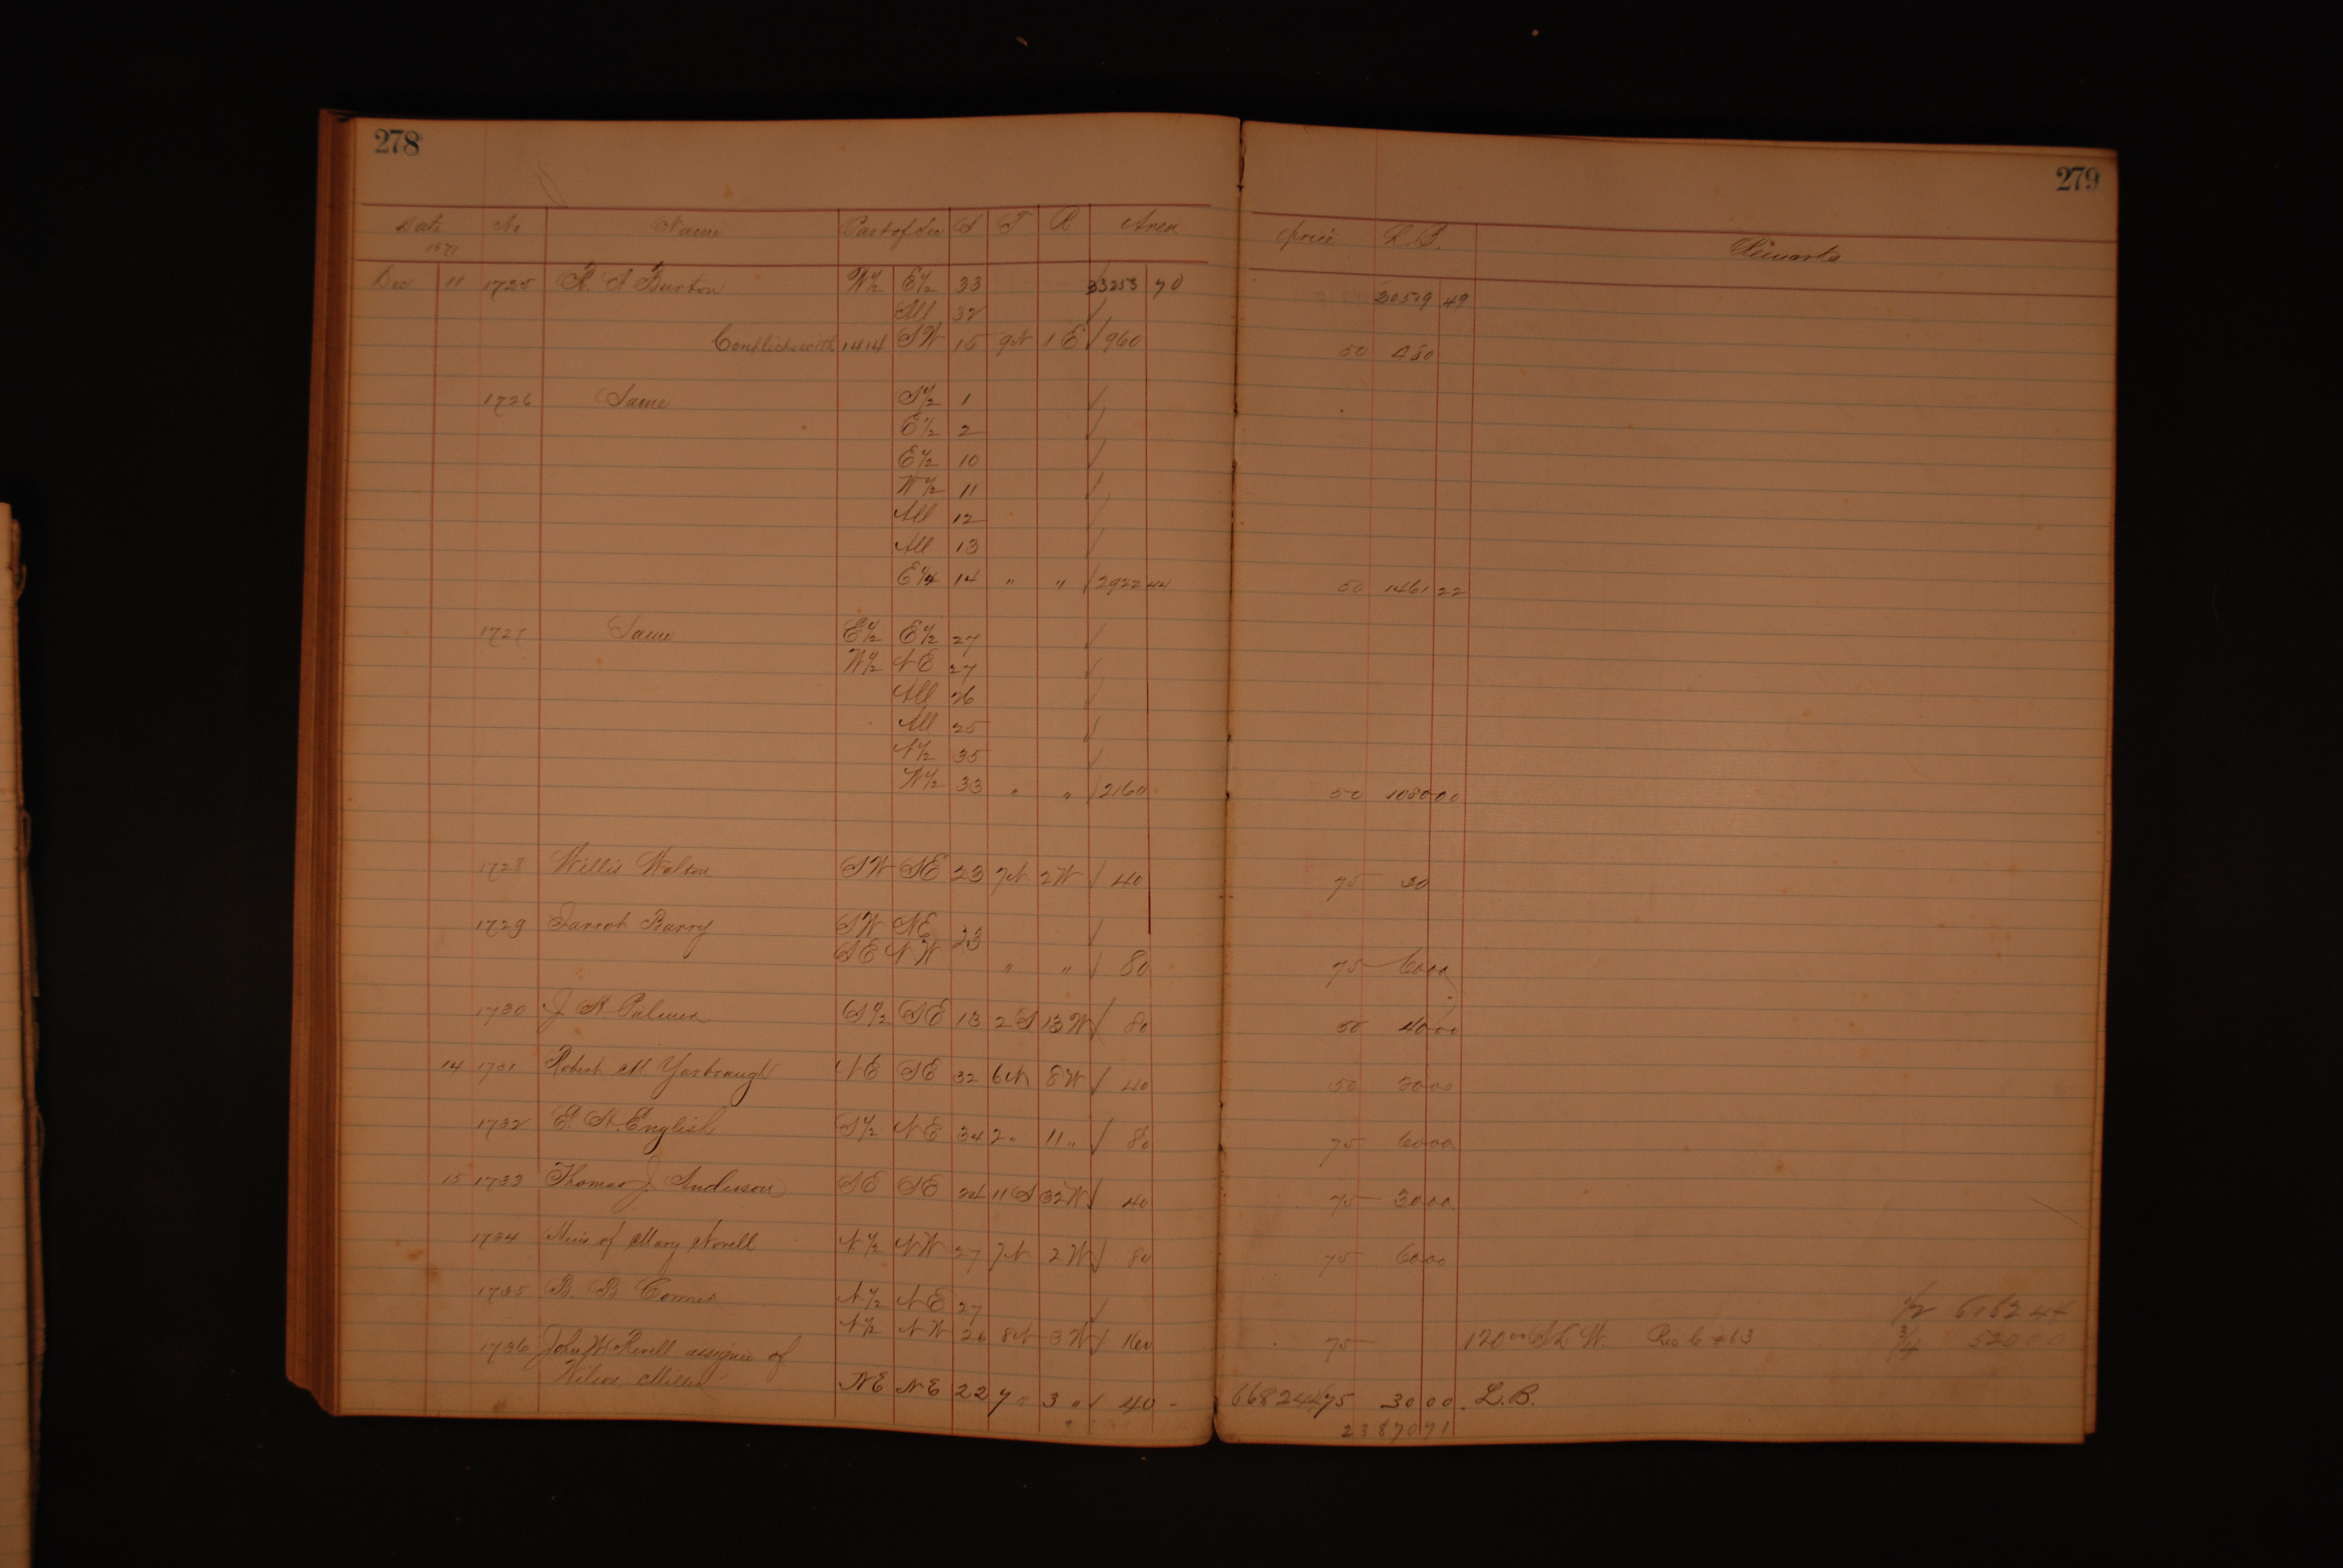 278
279
Date No Name Part of Sec S T R Area Price L.B. Remarks
1871
Dec 11 1725 R. A Burton W½ E½ 33 33253 70 20519 49
All 32 ✓
Conflicts with 1414 SW 15 9N 1E ✓ 960 50 480
1726 Same S½ 1 ✓
E½ 2 ✓
E½ 10 ✓
W½ 11 ✓
All 12 ✓
All 13 ✓
E¼ 14 " " ✓ 2922 44 50 1461 22
1727 Same E½ E½ 27 ✓
W½ NE 27 ✓
All 26 ✓
All 25 ✓
N½ 35 ✓
W½ 33 " " ✓ 2160 50 1080 00
1728 Willis SW SE 23 7N 2W ✓ 40 75 30
1729 Barry SW NE 23 ✓
SE NW " " ✓ 80 75 60 00
1730 J Palmer S½ SE 13 2S 13W ✓ 80 50 40 00
14 1731 Robert M. Yarbraugh NE SE 32 6N 8W ✓ 40 50 20 00
1732 E. H. English S½ NE 34 2 " 11 " ✓ 80 75 60 00
15 1733 Thomas J. Anderson SE SE 24 11S 32W ✓ 40 75 30 00
1734 Heirs of Mary Norell N½ NW 27 7N 2W ✓ 80 75 60 00
1735 B. B Conner N½ NE 27 ✓ ½ 6162 44
N½ NW 26 8N 3W ✓ 160 75 120 00 S L W. Rec 6 & 13 ¾ 520 00
1736 John W. Revell assignee of
Miller NE NE 22 7 " 3 " ✓ 40 - 6682 44 75 30 00. L.B.
23870 71